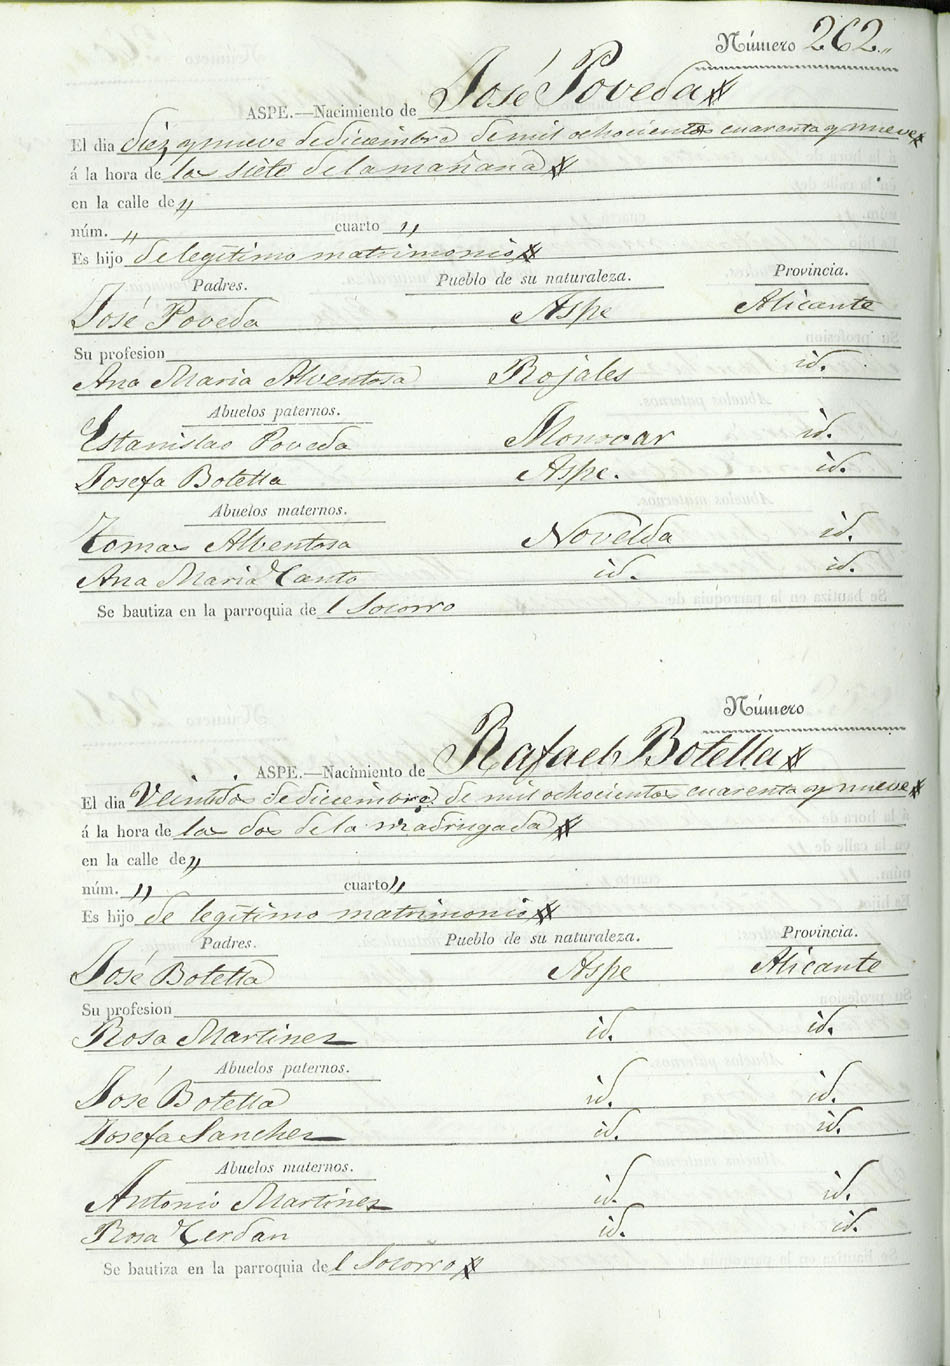 Número 262.,,
ASPE.—Nacimiento de José Poveda
El dia diez y nueve de diciembre de mil ochocientos cuarenta y nueve
á la hora de las siete de la mañana
en la calle de „
núm. „ cuarto „
Es hijo de legítimo matrimonio
Padres. Pueblo de su naturaleza. Provincia.
José Poveda Aspe Alicante
Su profesion
Ana Maria Alventosa Rojales id.
Abuelos paternos.
Estanislao Poveda Monovar id.
Josefa Botella Aspe. id.
Abuelos maternos.
Tomas Alventosa Novelda id.
Ana Maria Canto id. id.
Se bautiza en la parroquia de l Socorro
Número
ASPE.—Nacimiento de Rafael Botella
El dia Veintidos de diciembre de mil ochocientos cuarenta y nueve
á la hora de las dos de la madrugada
en la calle de „
núm. „ cuarto „
Es hijo de legítimo matrimonio
Padres. Pueblo de su naturaleza. Provincia.
José Botella Aspe Alicante
Su profesion
Rosa Martinez id. id.
Abuelos paternos.
José Botella id. id.
Josefa Sanchez id. id.
Abuelos maternos.
Antonio Martinez id. id.
Rosa Cerdan id. id.
Se bautiza en la parroquia de l Socorro